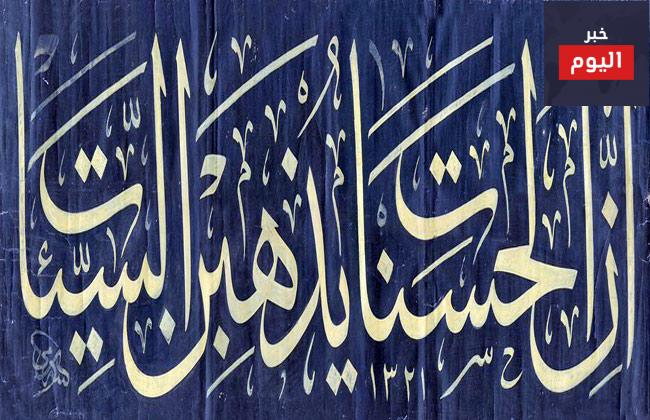 خبر
اليوم
إنّ الحسنات يذهبن السّيّئات
١٣٢١